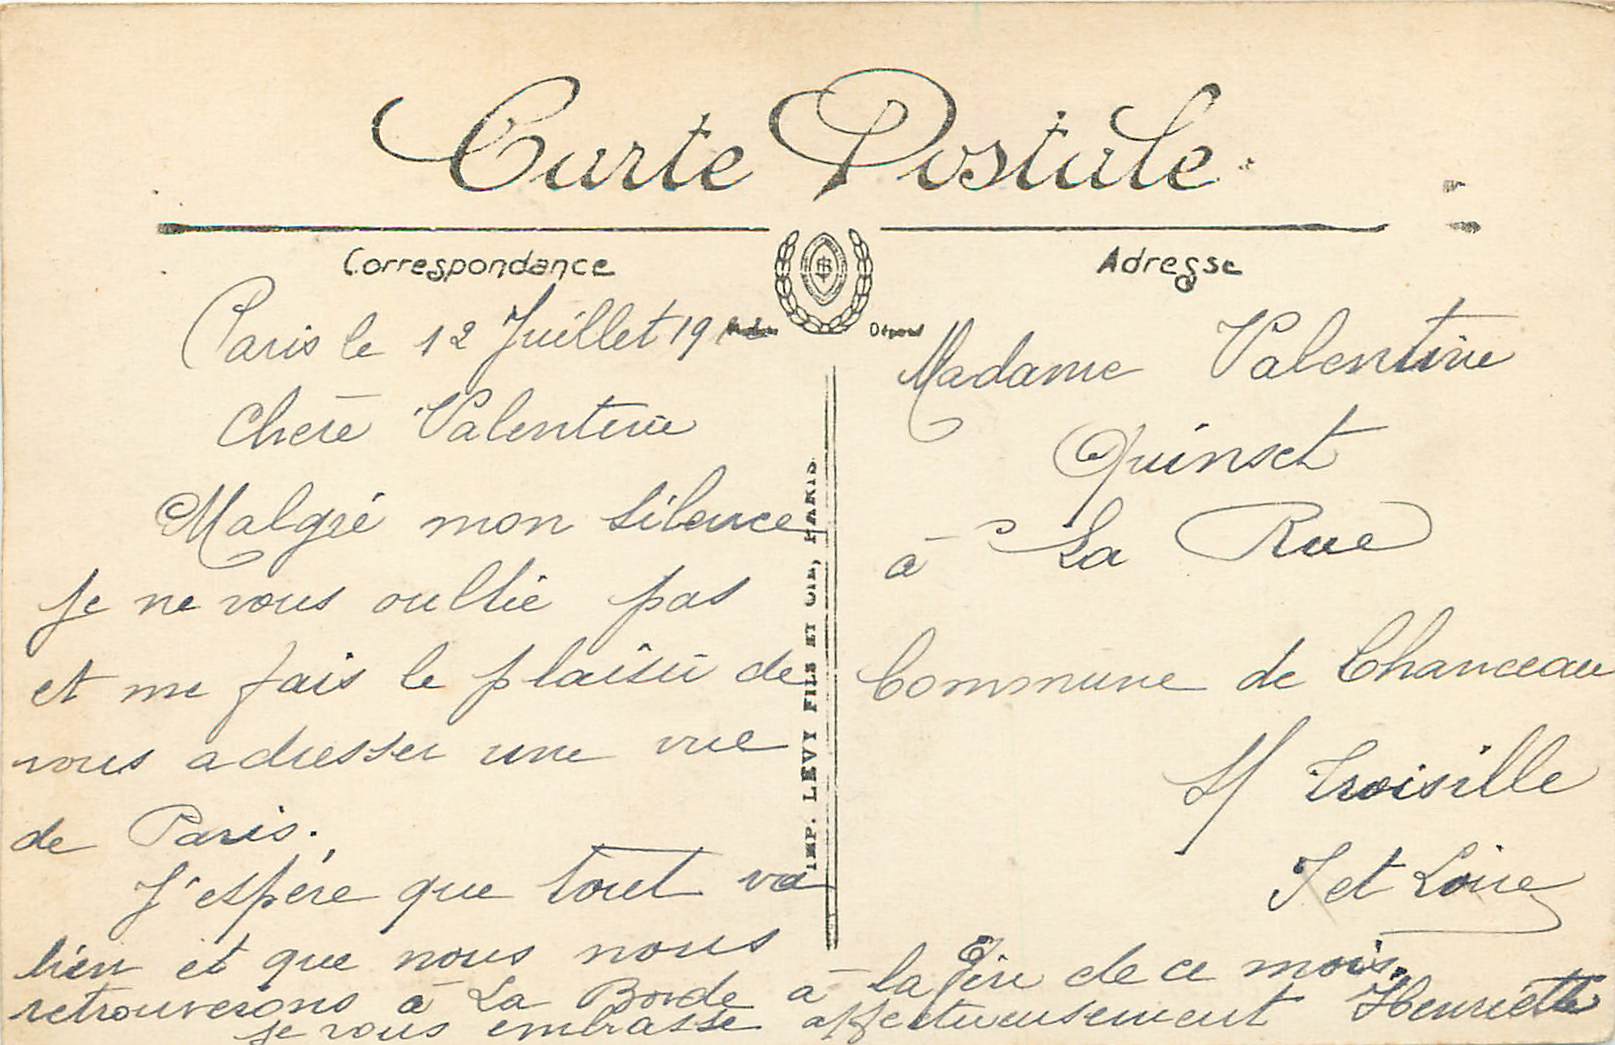 Carte Postale
Correspondance
Adresse
Paris le 12 Juillet 19
Chère Valentine
Malgré mon silence
je ne vous oublie pas
et me fais le plaisir de
vous adresser une vue
de Paris.
J'espère que tout va
bien et que nous nous
retrouverons à La Borde à la fin de ce mois.
je vous embrasse affectueusement Henriette
IMP. LEVY FILS ET CIE, PARIS
Madame Valentine
Quinset
à La Rue
Commune de Chanceau
s/ Troisille
I et Loire